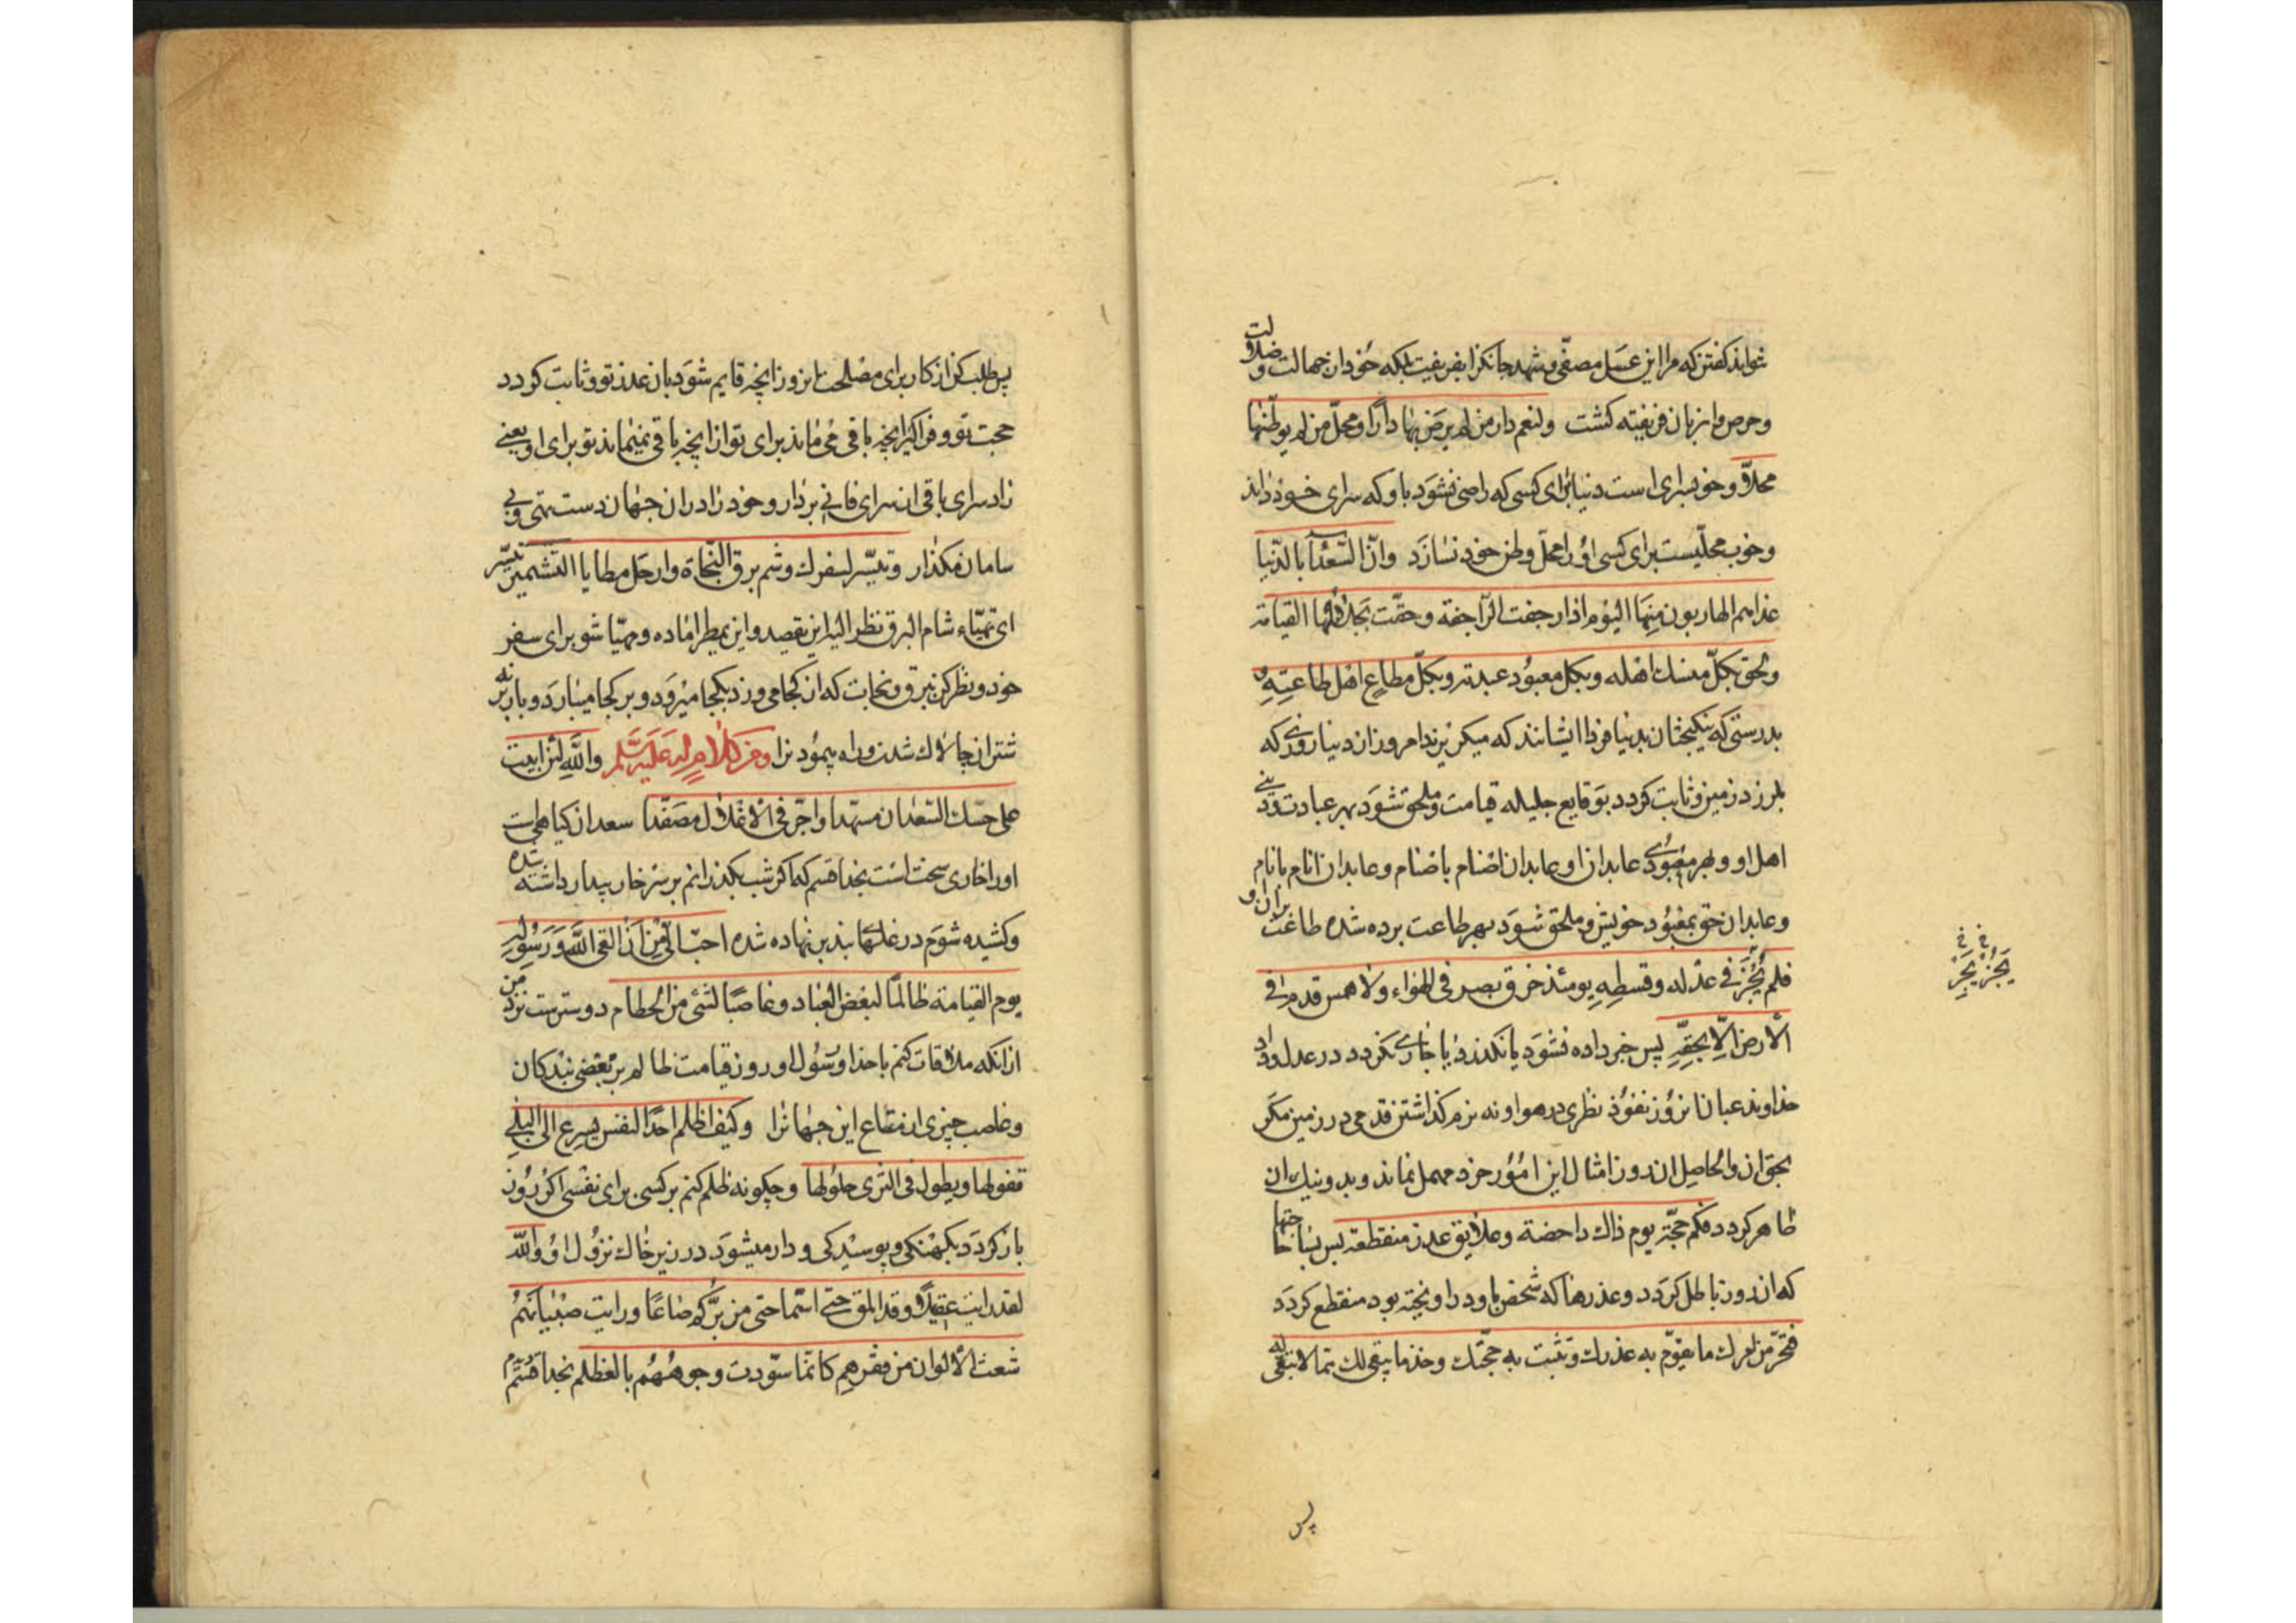 تواند كفتن كه مرا اين عسل مصفّى و شهد جانكزا بفريفيت بلكه خود از جهالت و ضلالت
و حرص و ارزبان فريفته كشت ولنعم دار من لم يرض بها دارًا و محلّ من لم يوطّنها
محلاًّ و خوب سراى است دنيا براى كسى كه راضى نشود باو كه سراى خود داند
و خوب محلّيست براى كسى او را محلّ وطن خود نسازد وانّ السّعدآء بالدّنيا
غدا هم الهاربون منها اليوم اذا رجفت الرّاجفة و حقّت بجلائلها القيامة
ولحق بكلّ منسك اهله وبكل معبود عبدته وبكلّ مطاع اهل طاعته
بدرستى كه نيكبختان بدنيا فردا ايشانند كه ميكريزند امروز از دنيا روزى كه
بلرزد زمين و ثابت كردد بوقايع جليله قيامت و ملحق شود بهر عبادت و دينى
اهل او و بهر معبودى عابدان او عابدان اصنام باصنام و عابدان انام بانام
و عابدان حق بمعبود خويش و ملحق شود بهر طاعت برده شده طاعت بران او
فلم يجز فى عدله وقسطه يومئذ خرق بصر فى الهواء ولا همس قدم فى
الأرض الّا بحقّه پس جزا داده نشود يا نكذرد يا جارى نكردد در عدل و داد
خداوند عباد انروز نفوذ نظرى در هوا و نه نرم كذاشتن قدمى در زمين مكر
بحق ان والحاصل ان روز امثال اين امور خرد مهمل نماند و بد و نيك ان
ظاهر كردد فكم حجّة يوم ذاك داحضة وعلايق عذر منقطعة پس بسا حجتها
كه ان روز باطل كردد و عذرها كه شخص باو در اويخته بود منقطع كردد
فتحرّ من امرك ما يقوم به عذرك و تثبت به حجّتك وخذ ما يبقى لك ممّا لا تبقى له
يجز يجز
پس
پس طلب كن از كار براى مصلحت انروز انچه قايم شود بان عذر تو و ثابت كردد
حجت تو و فراكير انچه باقى مى ماند براى تو از انچه باقى نميماند تو براى او يعنى
زاد سراى باقى از سراى فانى بردار و خود را در ان جهان دست تهى و بى
سامان مكذار وتيسّر لسفرك وشم برق النّجاة وارحل مطايا التّشمير تيسّر
اى تهيّاء شام البرق نظر اليه اين يقصد واين يمطر اماده و مهيّا شو براى سفر
خود و نظر كن ببرق نجات كه از كجا مى وزد بكجا ميرود و بر كجا ميبارد و بار بنه بر
شتران چالاك شدن و راه پيمودن را ومن كلام له عليه السّلم والله لئن ابيت
على حسك السّعدان مسهّدا واجرّ فى الأغلال مصفّدا سعدان كياهى است
او را خارى سخت است بخدا قسم كه اكر شب بكذرانم بر سر خار بيدار داشته شده
و كشيده شوم در غلها بند بر نهاده شده احبّ الىّ من ان القى الله ورسوله
يوم القيامة ظالمًا لبعض العباد وغاصبًا لشئ من الحطام دوسترست نزد من
ازانكه ملاقات كنم با خدا و رسول او روز قيامت ظالم بر بعضى بندكان
و غاصب چيزى از متاع اين جهان را وكيف اظلم احدًا لنفس يسرع الى البلى
قفولها ويطول فى الثرى حلولها و چكونه ظلم كنم بر كسى براى نفسى اكر زود
باز كردد بكهنكى و پوسيدكى و دار ميشود در زير خاك نزول او والله
لقد رايت عقيلاً وقد املق حتى استماحنى من برّكم صاعًا ورايت صبيانهم
شعث الألوان من فقرهم كانّما سوّدت وجوههم بالعظلم بخدا قسم